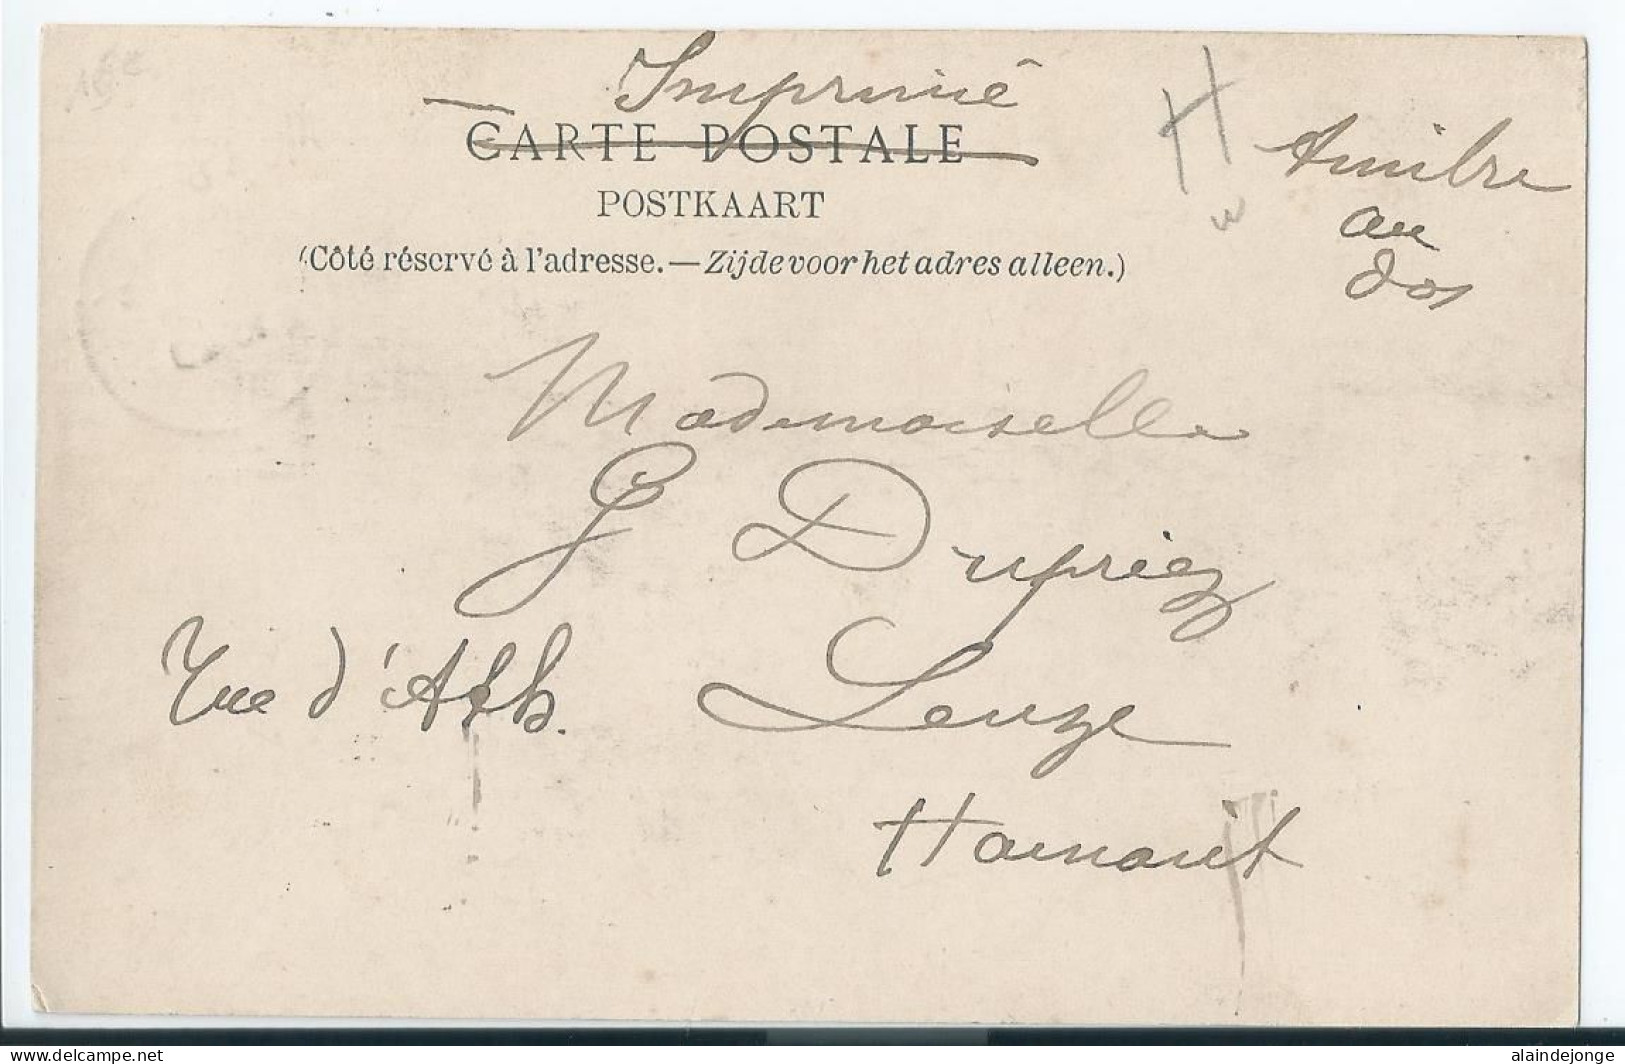 Imprimé
CARTE POSTALE
POSTKAART
(Côté réservé à l'adresse.—Zijde voor het adres alleen.)
timbre
au
dos
Mademoiselle
G Dupriez
rue d'Ath. Leuze
Hainaut
delcampe.net
alaindejonge